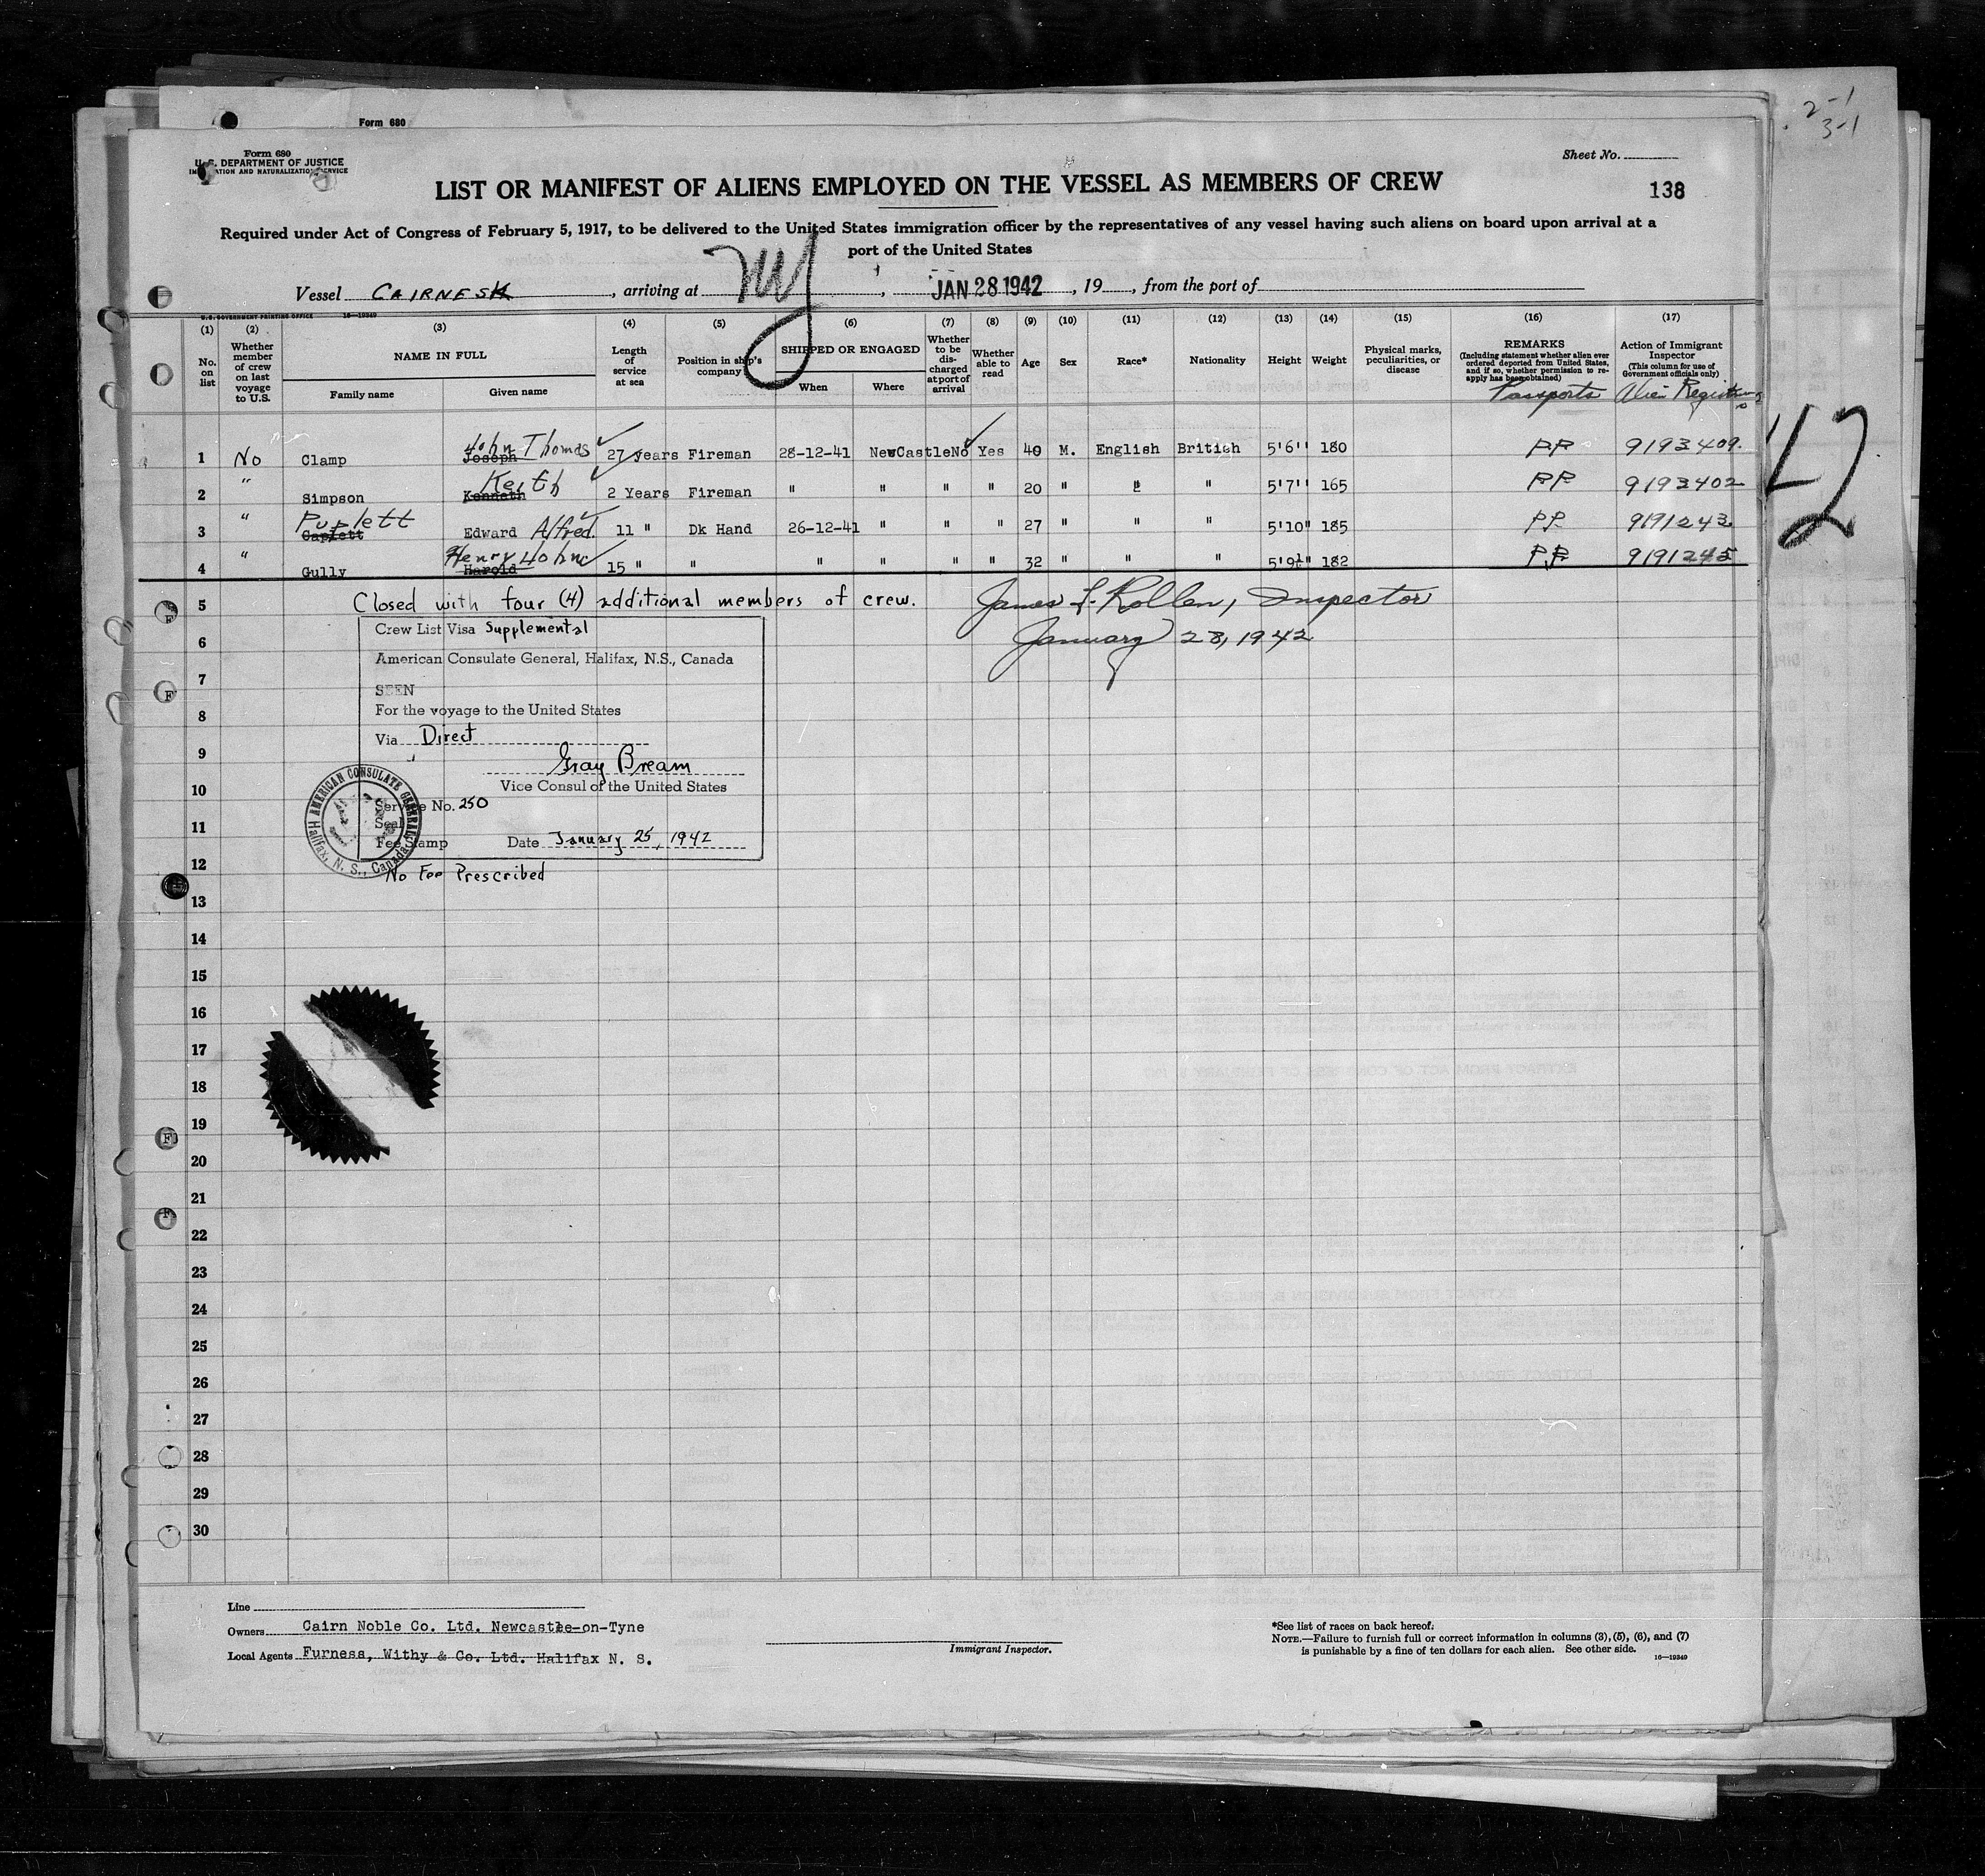 Form 680
2-1
3-1
Form 680
U. S. DEPARTMENT OF JUSTICE
IMMIGRATION AND NATURALIZATION SERVICE
Sheet No.
LIST OR MANIFEST OF ALIENS EMPLOYED ON THE VESSEL AS MEMBERS OF CREW
138
Required under Act of Congress of February 5, 1917, to be delivered to the United States immigration officer by the representatives of any vessel having such aliens on board upon arrival at a
port of the United States
Vessel CAIRNESK, arriving at NY, JAN 28 1942, 19, from the port of
U. S. GOVERNMENT PRINTING OFFICE 16—19349
(1) (2) (3) (4) (5) (6) (7) (8) (9) (10) (11) (12) (13) (14) (15) (16) (17)
No. on list
Whether member of crew on last voyage to U.S.
NAME IN FULL
Family name Given name
Length of service at sea
Position in ship's company
SHIPPED OR ENGAGED
When Where
Whether to be discharged at port of arrival
Whether able to read
Age Sex Race* Nationality Height Weight
Physical marks, peculiarities, or disease
REMARKS
(Including statement whether alien ever ordered deported from United States, and if so, whether permission to reapply has been obtained)
Passports
Action of Immigrant Inspector
(This column for use of Government officials only)
Alien Registration
John Thomas
1 No Clamp Joseph 27 years Fireman 28-12-41 NewCastle No Yes 40 M. English British 5'6" 180 PP 9193409.
Keith
2 " Simpson Kenneth 2 Years Fireman " " " " 20 " " " 5'7" 165 PP 9193402
Purlett
3 " Caplett Edward Alfred. 11 " Dk Hand 26-12-41 " " " 27 " " " 5'10" 185 PP 9191243
Henry John
4 " Gully Harold 15 " " " " " " 32 " " " 5'9½" 182 PP 9191245
42
5 Closed with four (4) additional members of crew. James F. Rollen, Inspector
6 January 28, 1942
Crew List Visa Supplemental
American Consulate General, Halifax, N.S., Canada
7
SEEN
8 For the voyage to the United States
Via Direct
9
Gray Bream
10 Vice Consul of the United States
Service No. 250
11 Seal
Fee Stamp Date January 25, 1942
AMERICAN CONSULATE GENERAL
Halifax, N. S., Canada
12 No Fee Prescribed
13
14
15
16
17
18
19
20
21
22
23
24
25
26
27
28
29
30
Line
Owners Cairn Noble Co. Ltd. Newcastle-on-Tyne
Local Agents Furness, Withy & Co. Ltd. Halifax N. S.
Immigrant Inspector.
*See list of races on back hereof.
NOTE.—Failure to furnish full or correct information in columns (3), (5), (6), and (7)
is punishable by a fine of ten dollars for each alien. See other side.
16—19349